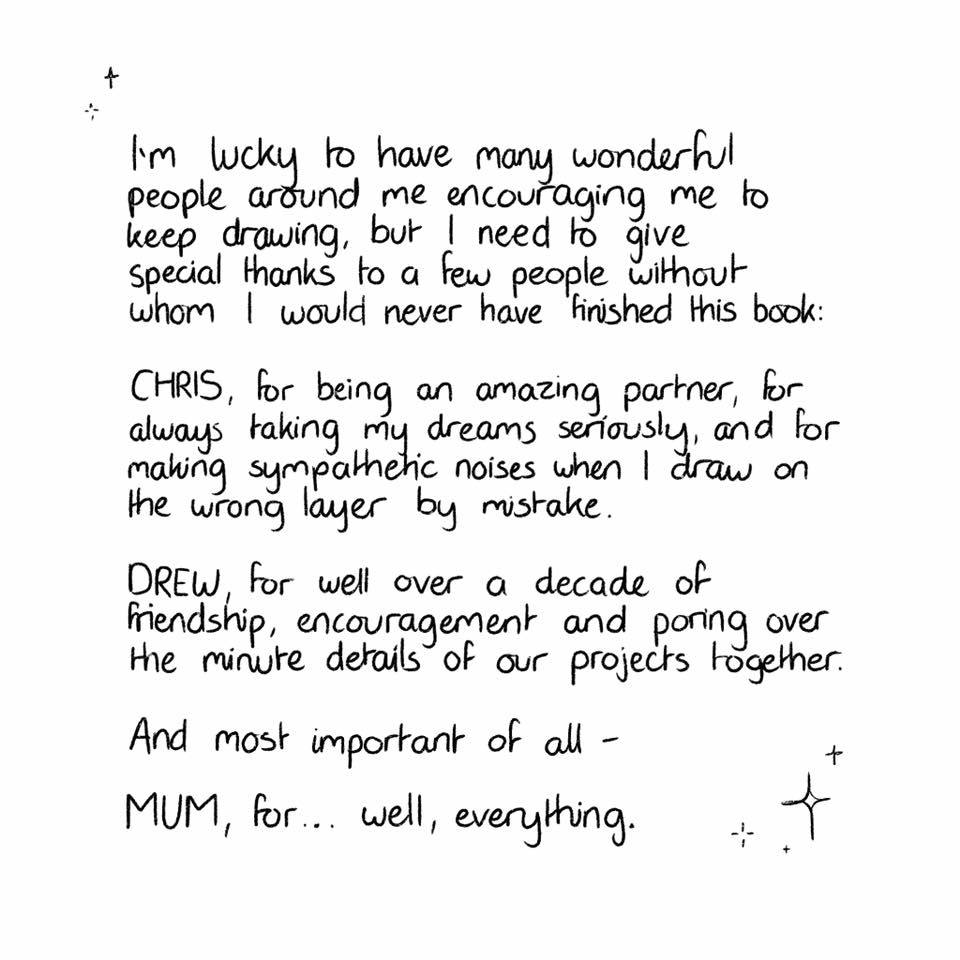 I'm lucky to have many wonderful
people around me encouraging me to
keep drawing, but I need to give
special thanks to a few people without
whom I would never have finished this book:
CHRIS, for being an amazing partner, for
always taking my dreams seriously, and for
making sympathetic noises when I draw on
the wrong layer by mistake.
DREW, for well over a decade of
friendship, encouragement and poring over
the minute details of our projects together.
And most important of all -
MUM, for... well, everything.